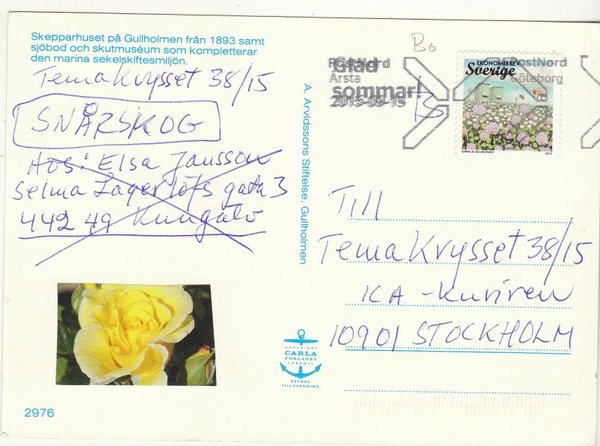 Skepparhuset på Gullholmen från 1893 samt
sjöbod och skutmuséum som kompletterar
den marina sekelskiftesmiljön.
TemaKrysset 38/15
SNÅRSKOG
Avs: Elsa Jansson
Selma Lagerlöfs gata 3
442 49 Kungälv
2976
A. Arvidssons Stiftelse, Gullholmen
COPYRIGHT
CARLA
FÖRLAGET
LYSEKIL
SVENSK
TILLVERKNING
Bo
B
PostNord
Årsta
Glad
sommar!
2015-09-15
PostNord
Göteborg
EKONOMIBREV
Sverige
Till
TemaKrysset 38/15
ICA-Kuriren
10901 STOCKHOLM